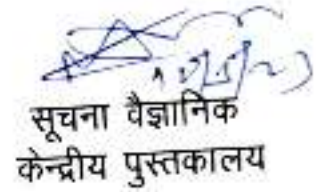 सूचना वैज्ञानिक
केन्द्रीय पुस्तकालय